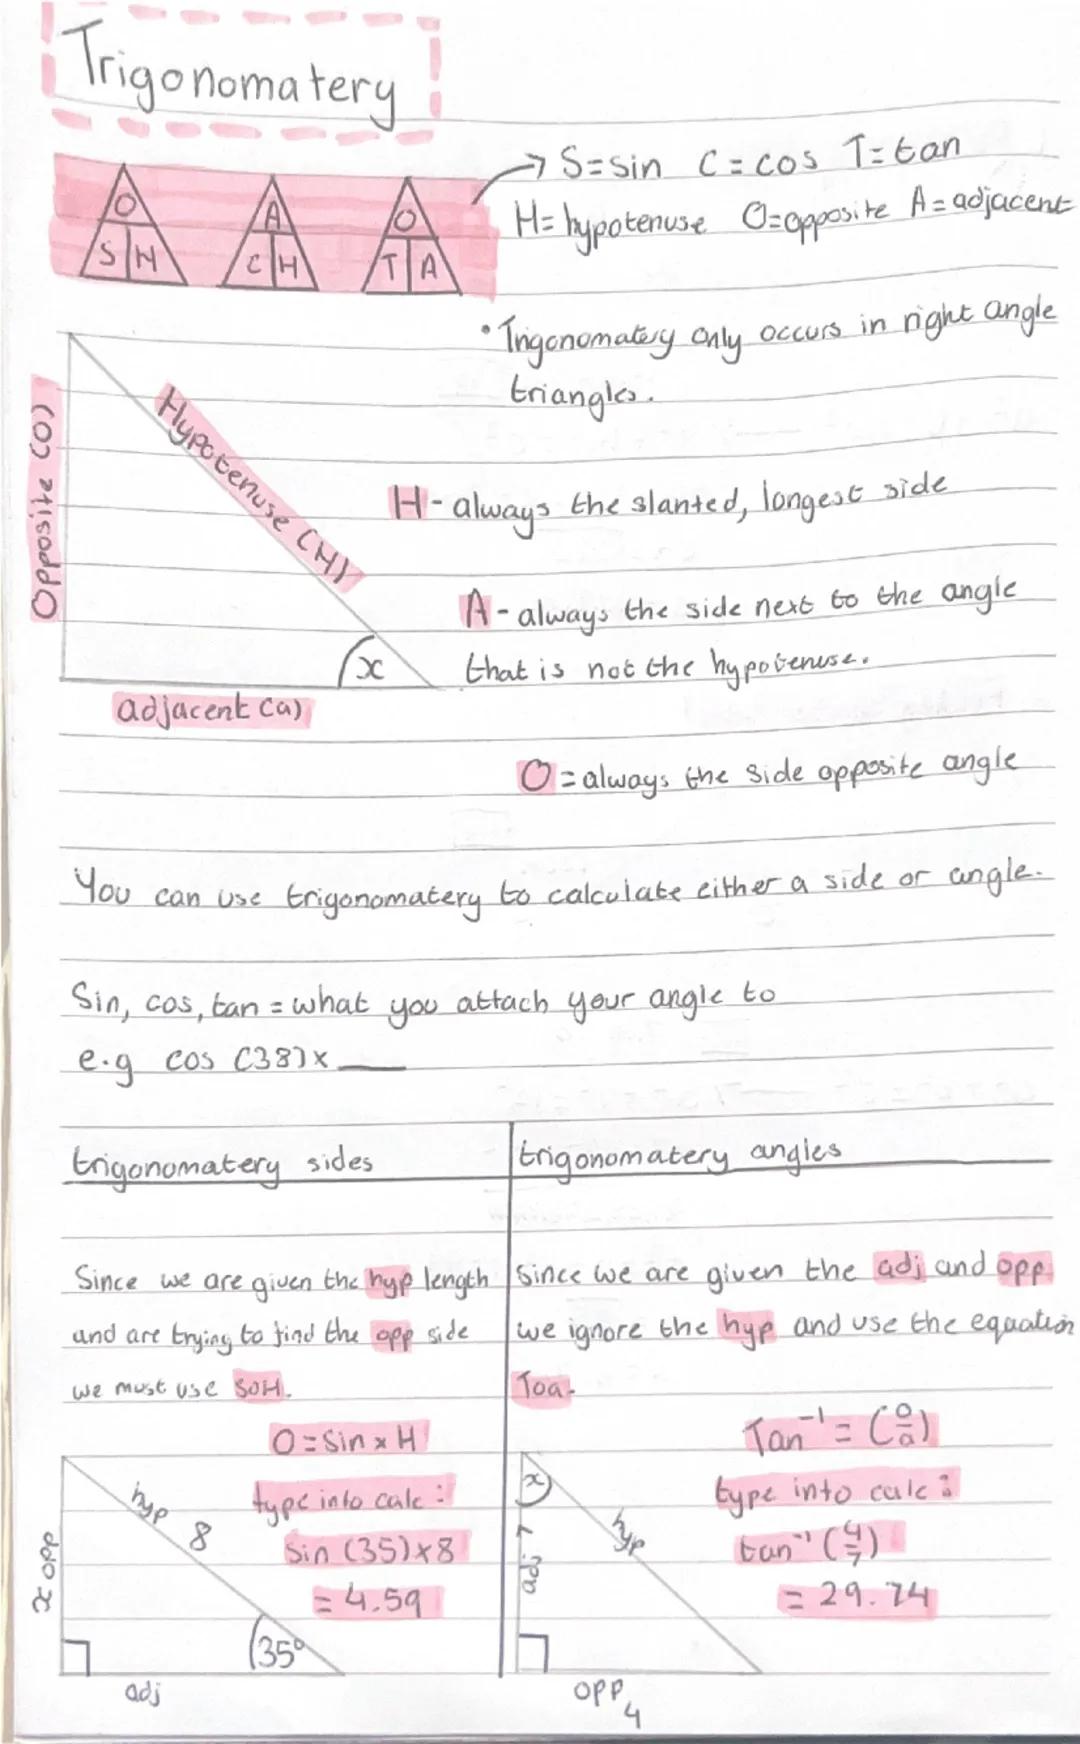 Trigonomatery
O
S H
A
C H
O
T A
→ S=sin C=cos T=tan
H=hypotenuse O=opposite A=adjacent
• Trigonomatery only occurs in right angle
triangles.
Opposite (O)
Hypotenuse (H)
x
adjacent (a)
H - always the slanted, longest side
A - always the side next to the angle
that is not the hypotenuse.
O = always the side opposite angle
You can use trigonomatery to calculate either a side or angle.
Sin, cos, tan = what you attach your angle to
e.g cos (38)x ___
trigonomatery sides
Since we are given the hyp length
and are trying to find the opp side
we must use SOH.
O=Sin x H
type into calc:
Sin (35)x8
= 4.59
hyp 8
x opp
35°
adj
trigonomatery angles
Since we are given the adj and opp
we ignore the hyp and use the equation
Toa.
Tan⁻¹ = (o/a)
type into calc:
tan⁻¹ (4/7)
= 29.74
x
adj 7
hyp
opp 4